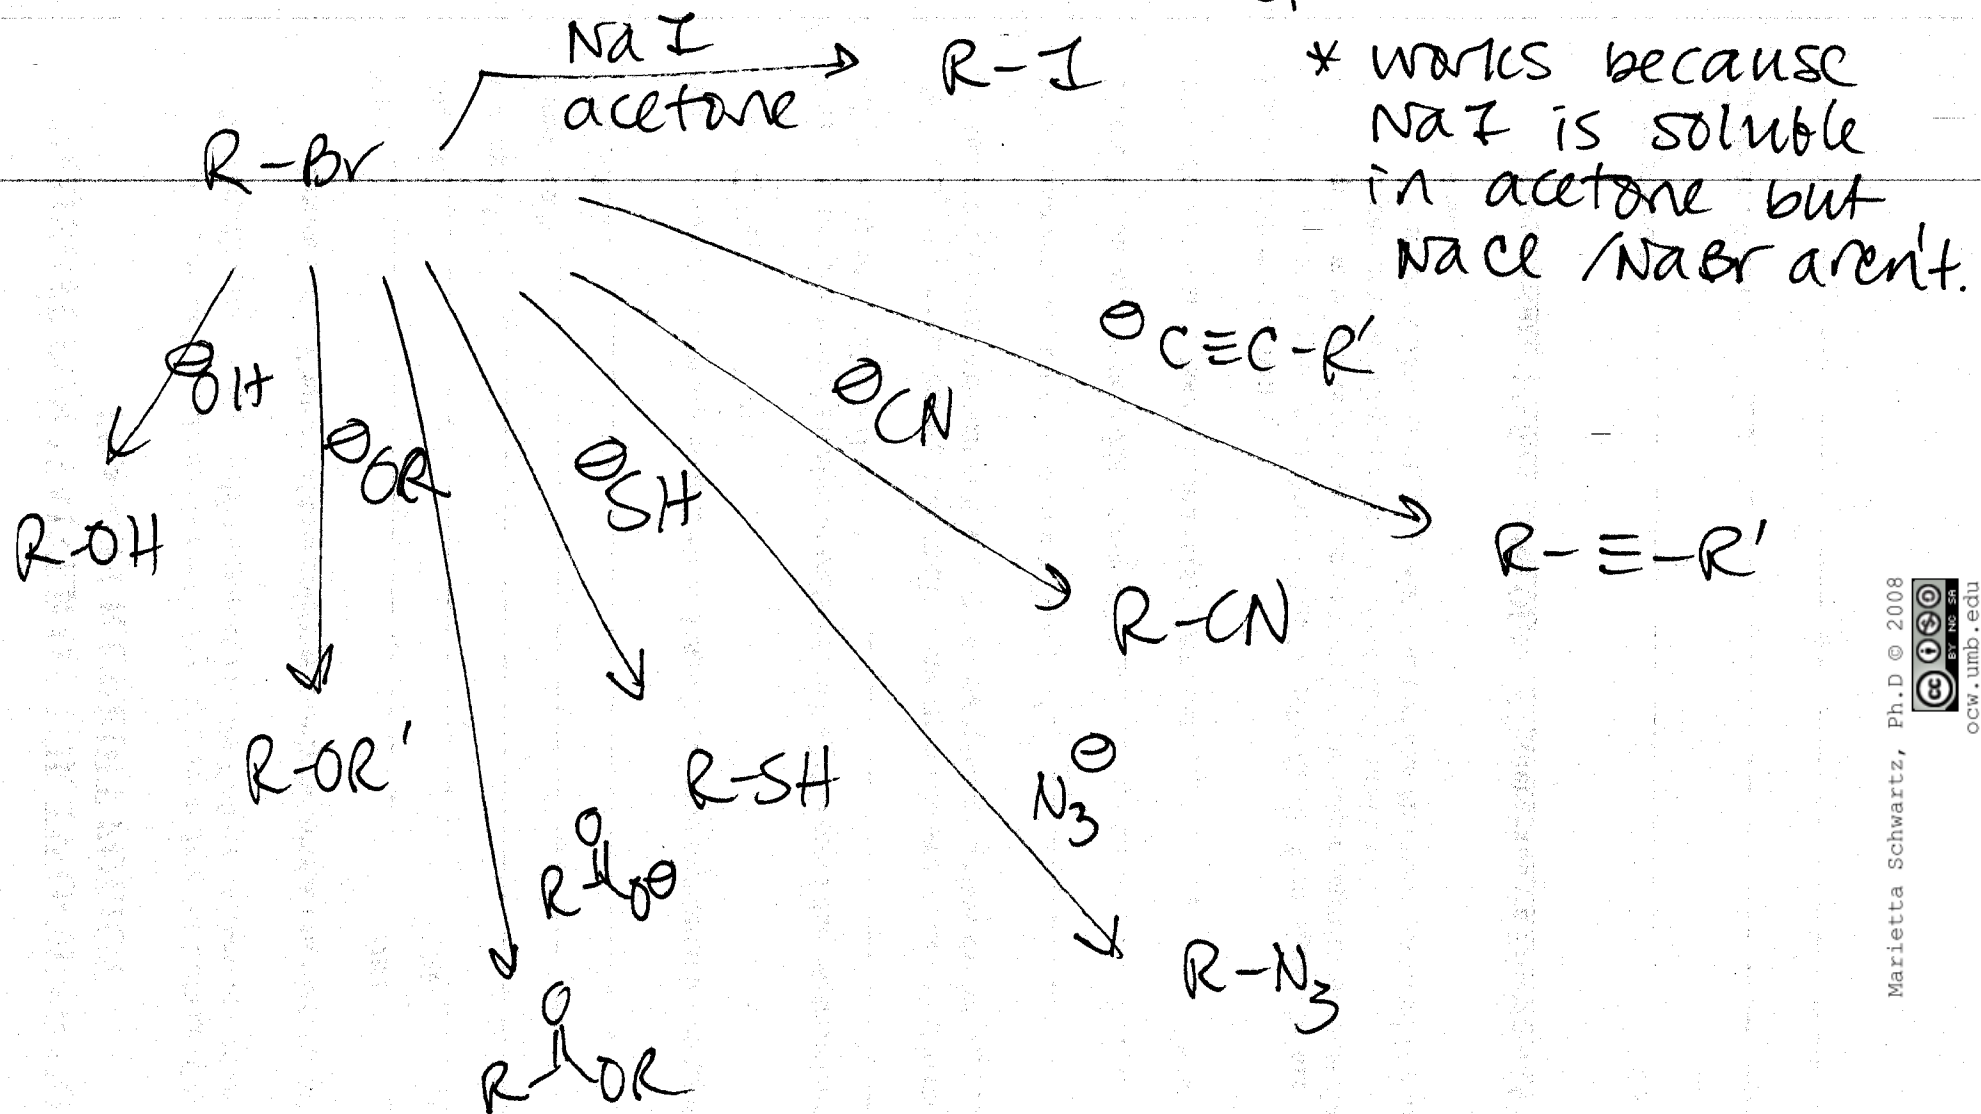 NaI
acetone
R-I
* works because
NaI is soluble
in acetone but
NaCl /NaBr aren't.
R-Br
⊖OH
R-OH
⊖OR
R-OR'
O
R O⊖
O
R OR
⊖SH
R-SH
N3⊖
R-N3
⊖CN
R-CN
⊖C≡C-R'
R-≡-R'
Marietta Schwartz, Ph.D © 2008
cc BY NC SA
ocw.umb.edu